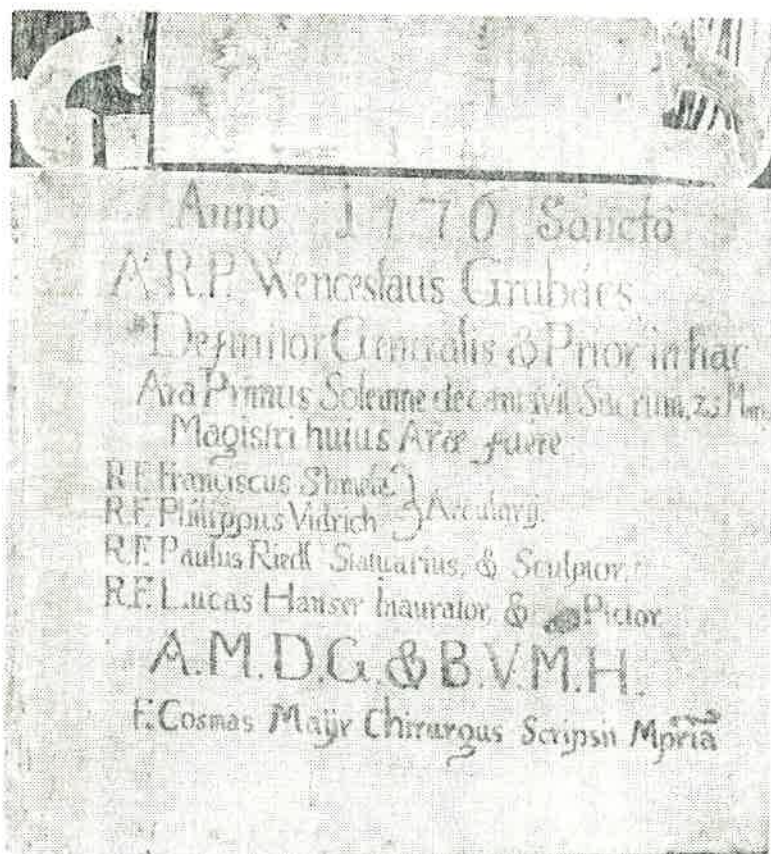 Anno 1770 Sancto
A.R.P. Wenceslaus Grubács
Definitor Generalis & Prior in hac
Ara Primus Solemne decantavit Sacrum,
Magistri huius Aræ fuere
R.F. Franciscus
R.F. Philippus Vidrich } Arcularij.
R.F. Paulus Riedl Statuarius, & Sculptor.
R.F. Lucas Hanser Inaurator, & Pictor
A.M.D.G. & B.V.M.H.
F. Cosmas Maÿr Chirurgus Scripsit Mpria